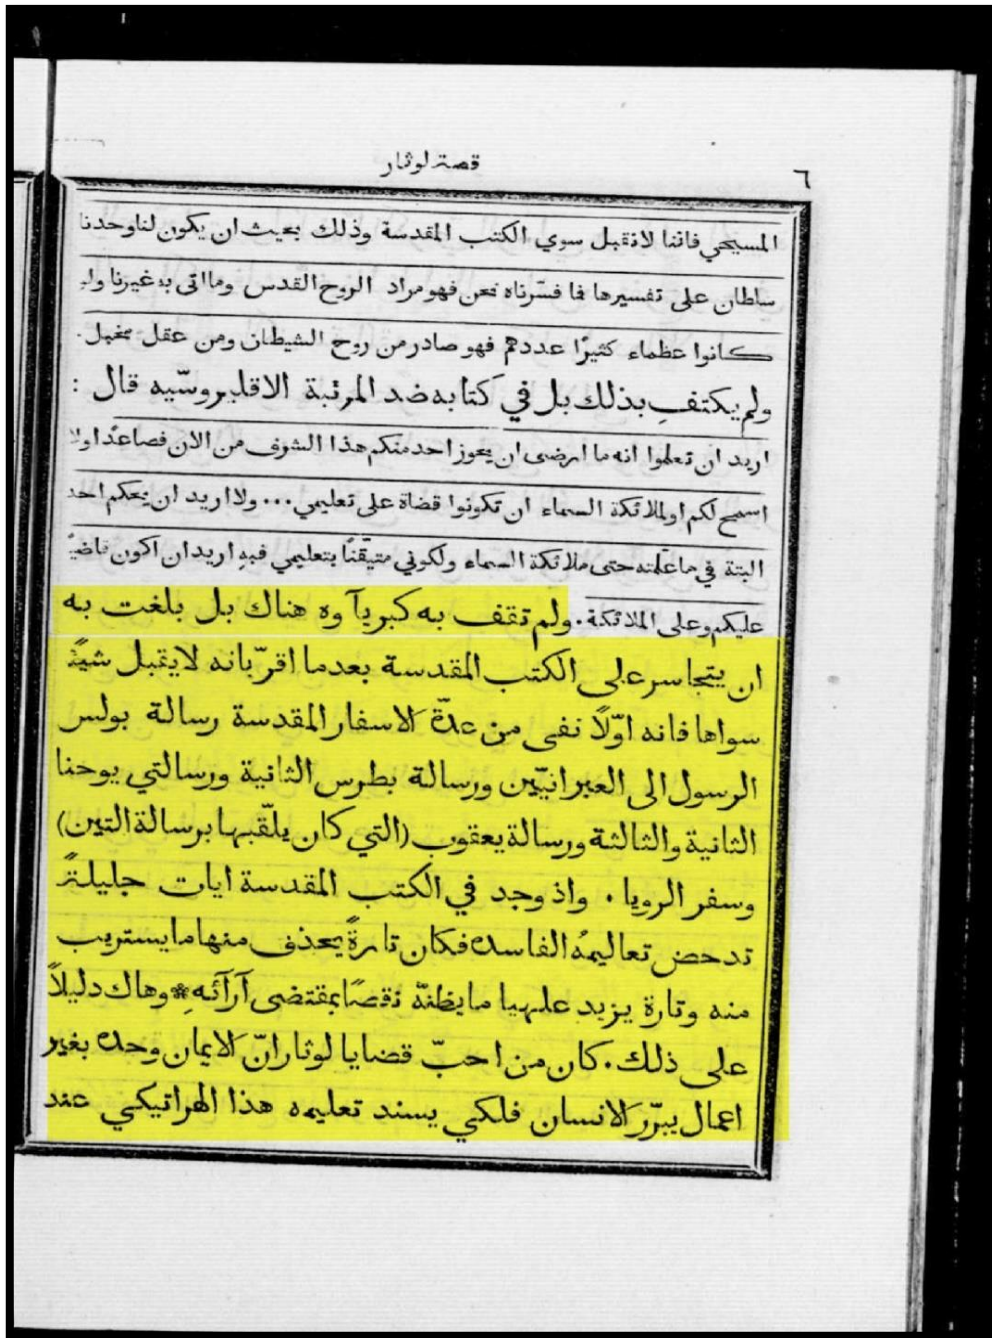 ٦
قصة لوثار
المسيحي فاننا لا نقبل سوي الكتب المقدسة وذلك بحيث ان يكون لنا وحدنا
سلطان على تفسيرها فما فسّرناه نحن فهو مراد الروح القدس وما اتى به غيرنا ولو
كانوا عظماء كثيرًا عددهم فهو صادر من روح الشيطان ومن عقل مخبل.
ولم يكتفِ بذلك بل في كتابه ضد المرتبة الاقليروسّيه قال :
اريد ان تعلموا انه ما ارضى ان يحوز احد منكم هذا الشرف من الان فصاعدًا ولا
اسمح لكم او لملائكة السماء ان تكونوا قضاة على تعليمي ... ولا اريد ان يحكم احد
البتة في ما علّمته حتى ملائكة السماء ولكوني متيقّنًا بتعليمي فبهِ اريد ان اكون قاضيًا
عليكم وعلى الملائكة. ولم تقف به كبريآوه هناك بل بلغت به
ان يتجاسر على الكتب المقدسة بعدما اقرّ بانه لا يقبل شيئًا
سواها فانه اوّلًا نفى من عدّة الاسفار المقدسة رسالة بولس
الرسول الى العبرانيّين ورسالة بطرس الثانية ورسالتي يوحنا
الثانية والثالثة ورسالة يعقوب (التي كان يلقّبها برسالة التبن)
وسفر الرويا . واذ وجد في الكتب المقدسة ايات جليلةً
تدحض تعاليمهُ الفاسده فكان تارةً يحذف منها ما يستريب
منه وتارة يزيد عليها ما يظنّه نقصًا بمقتضى آرآئهِ * وهاك دليلًا
على ذلك. كان من احبّ قضايا لوثار انّ الايمان وحده بغير
اعمال يبرّر الانسان فلكي يسند تعليمه هذا الهراتيكي عند